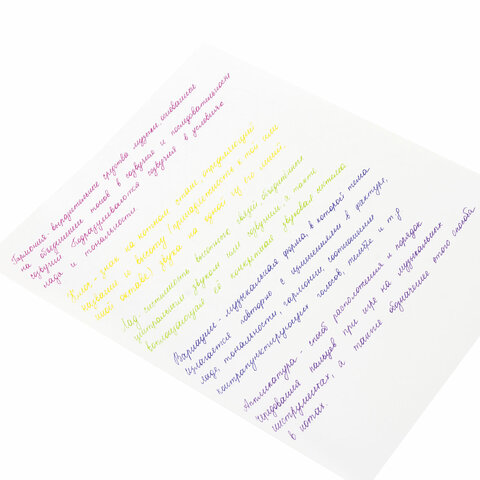 Гармония выразительное средство музыки, основанное
на объединении тонов в созвучия и последовательности
созвучий. Подразумеваются созвучия в условиях
лада и тональности.
Ключ знак на нотном стане, определяющий
название и высоту (принадлежность к той или
иной октаве) звука на одной из его линий.
Лад системность высотных связей объединённых
центральным звуком или созвучием, а также
воплощающая её конкретная звуковая система
Вариации - музыкальная форма, в которой тема
излагается повторно с изменениями в фактуре,
ладе, тональности, гармонии, соотношении
контрапунктирующих голосов, тембре и т.д
Аппликатура - способ расположения и порядок
чередования пальцев при игре на музыкальных
инструментах, а также обозначение этого способа
в нотах.